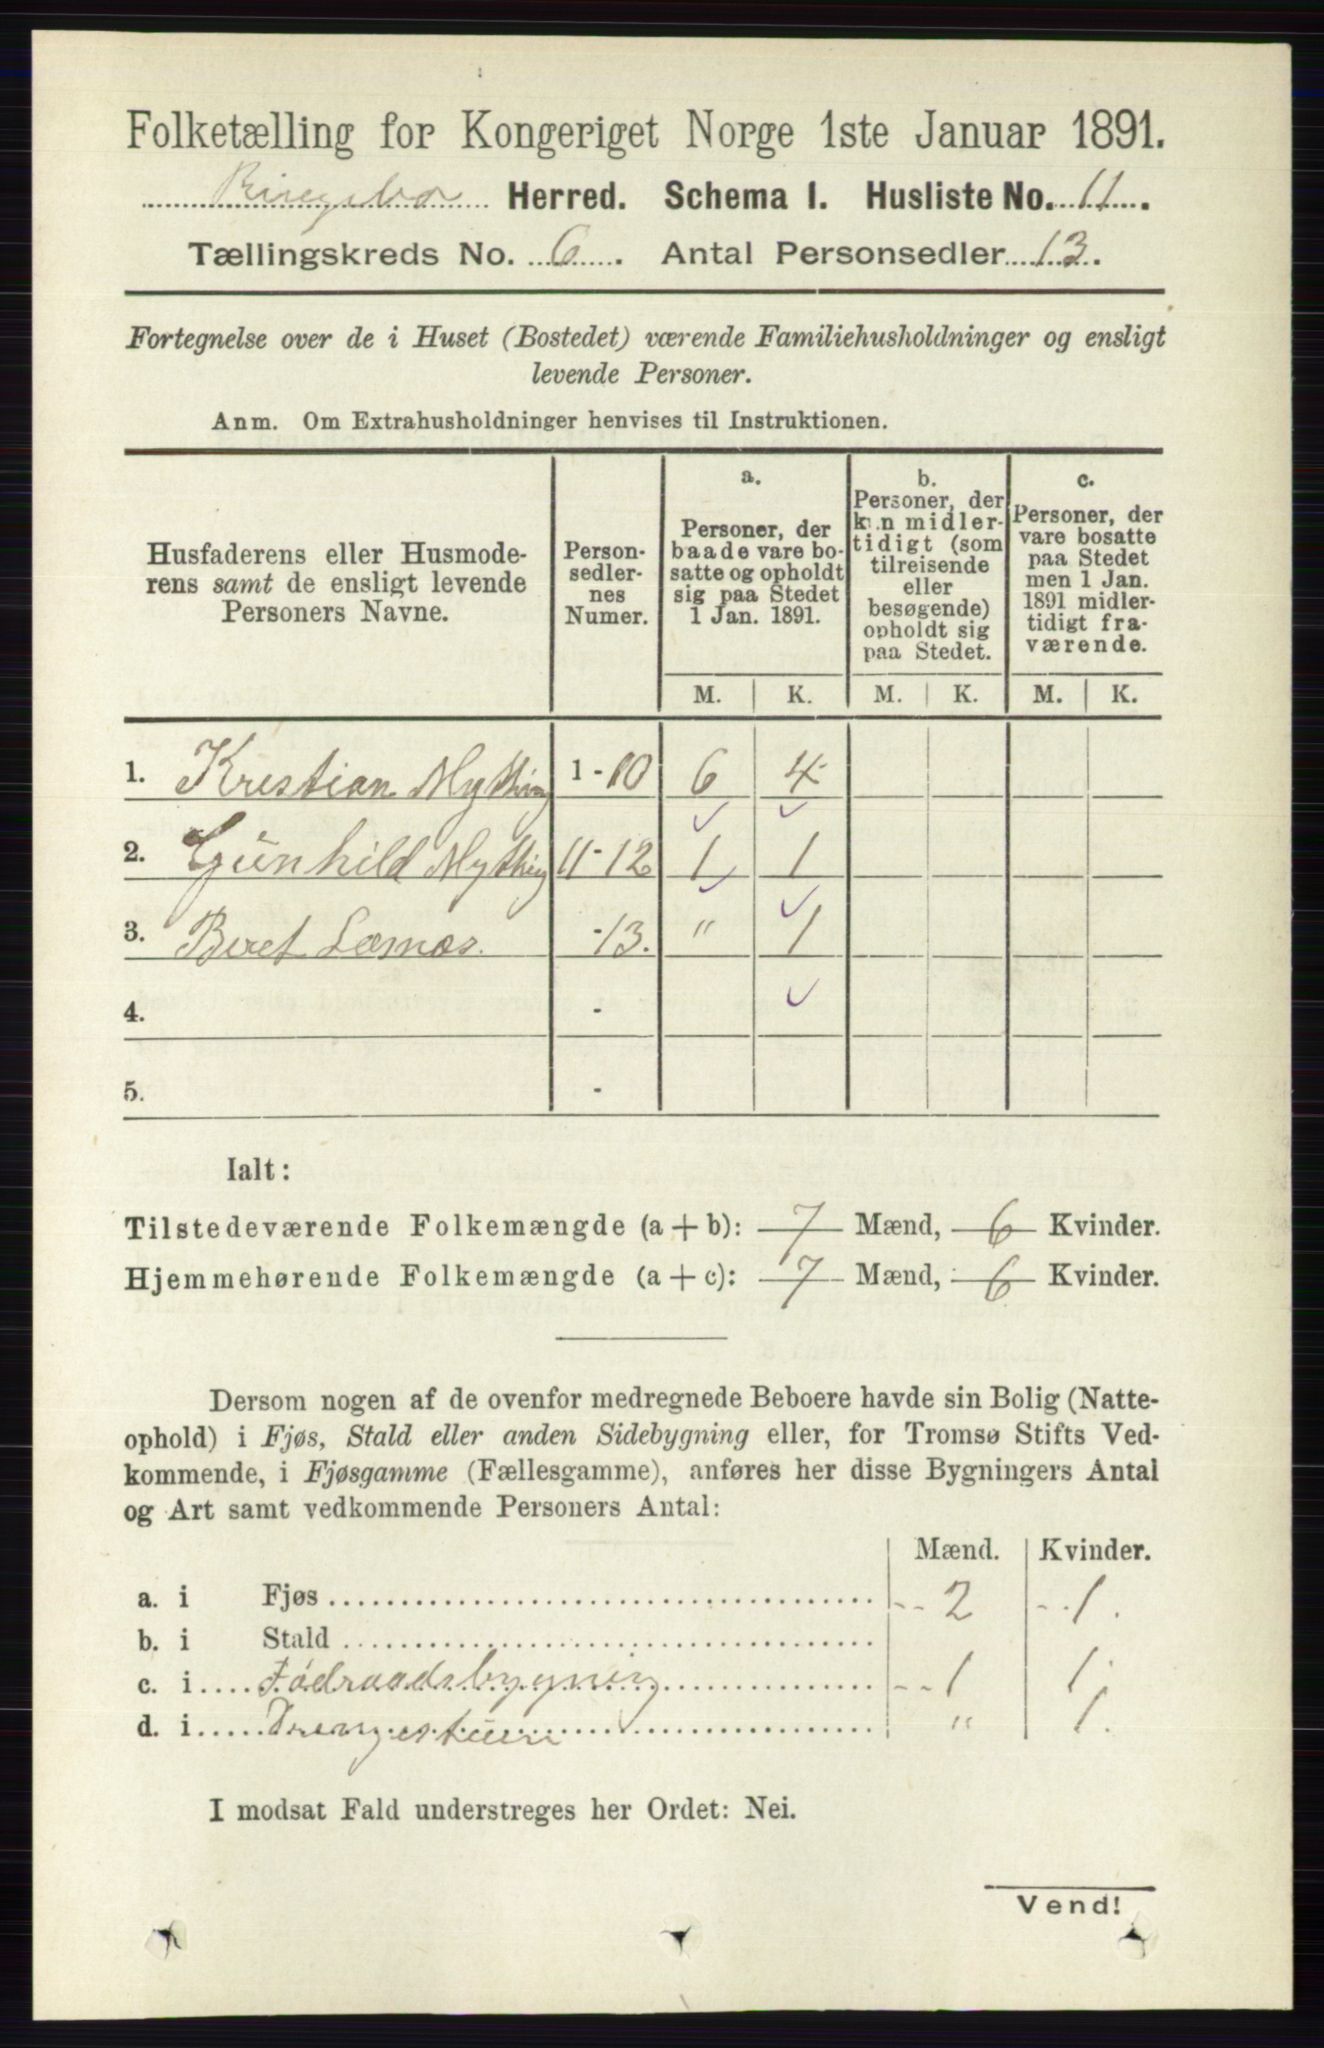 Folketælling for Kongeriget Norge 1ste Januar 1891.
Ringebu Herred. Schema I. Husliste No. 11.
Tællingskreds No. 6. Antal Personsedler 13.
Fortegnelse over de i Huset (Bostedet) værende Familiehusholdninger og ensligt
levende Personer.
Anm. Om Extrahusholdninger henvises til Instruktionen.
Husfaderens eller Husmode-
rens samt de ensligt levende
Personers Navne.
Person-
sedler-
nes
Numer.
a.
Personer, der
baade vare bo-
satte og opholdt
sig paa Stedet
1 Jan. 1891.
b.
Personer, der
kun midler-
tidigt (som
tilreisende
eller
besøgende)
opholdt sig
paa Stedet.
c.
Personer, der
vare bosatte
paa Stedet
men 1 Jan.
1891 midler-
tidigt fra-
værende.
M. K. M. K. M. K.
1. Kristian Mything 1-10 6 4
2. Gunhild Mything 11-12 1 1
3. Beret -13. " 1
4. -
5. -
Ialt:
Tilstedeværende Folkemængde (a + b): 7 Mænd, 6 Kvinder.
Hjemmehørende Folkemængde (a + c): 7 Mænd, 6 Kvinder.
Dersom nogen af de ovenfor medregnede Beboere havde sin Bolig (Natte-
ophold) i Fjøs, Stald eller anden Sidebygning eller, for Tromsø Stifts Ved-
kommende, i Fjøsgamme (Fællesgamme), anføres her disse Bygningers Antal
og Art samt vedkommende Personers Antal:
Mænd. Kvinder.
a. i Fjøs 2 1.
b. i Stald
c. i Fødraadsbygning 1 1
d. i Drengestuen " 1.
I modsat Fald understreges her Ordet: Nei.
Vend!